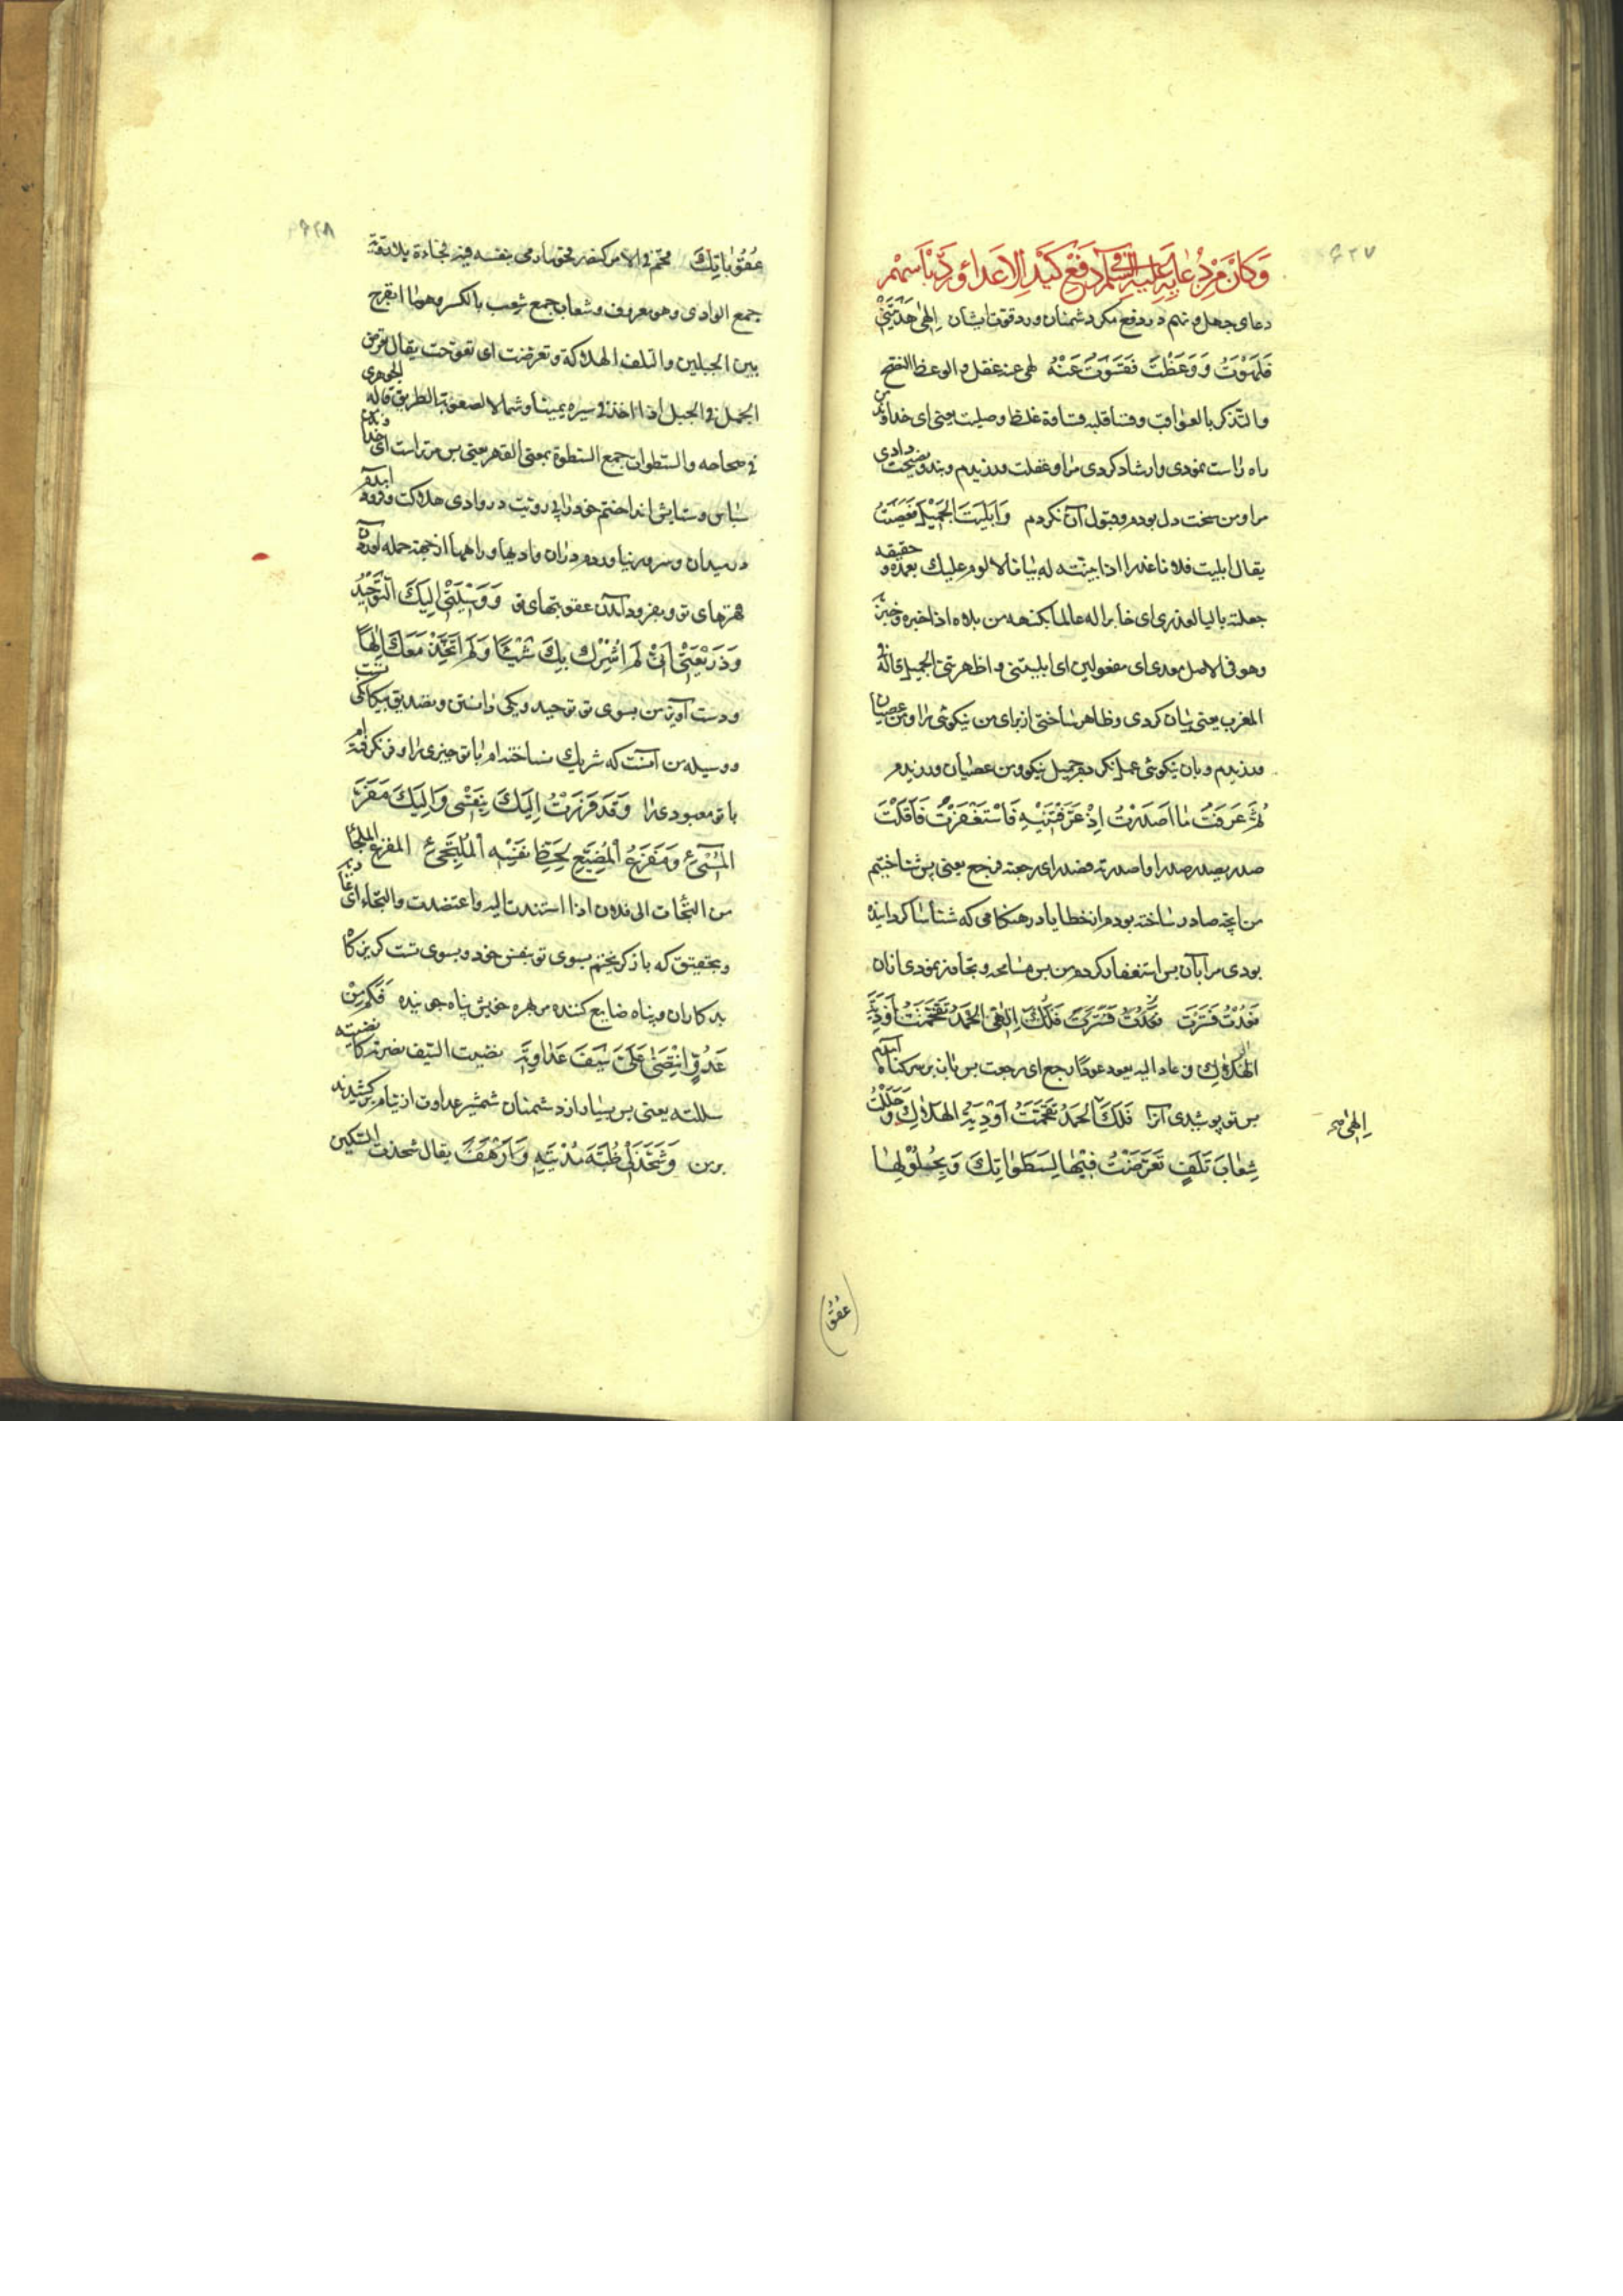 ۶۲۷
وَكانَ مِنْ دُعائِهِ عَلَيْهِ السَّلام فى دَفْعِ كَيْدِ الاَعداءِ وَرَدِّ بَأسِهِمْ
دعای چهل و نهم در دفع مکر دشمنان و رد قوت ایشان اِلهى هَدَيْتَنى
فَلَهَوْتُ وَوَعَظْتَ فَقَسَوْتُ عَنْهُ لهى عنه غفل والوعظ النصح
والتذکر بالعواقب وقسا قلبه قساوة غلظ وصلبت یعنی ای خداوند من
راه راست نمودی وارشاد کردی مرا و غفلت ورزیدم وپند ونصیحت دادی
مرا ومن سخت دل بودم وقبول آن نکردم وَاَبْلَيْتَ الْجَميلَ فَعَصَيْتُ
یقال ابلیت فلانا عذرا اذا بینته له بیانا لا لوم علیک بعده وحقیقه
جعلته بالیا لعذری ای خابرا له عالما بکنهه من بلاه اذا اخبره وجرّبه
وهو فی الاصل معدی ای مفعولین ای ابلیتنی و اظهرتنی الجمیل قاله فی
المغرب یعنی بیان کردی وظاهر ساختی از برای من نیکوئی را ومن عصیان
ورزیدم وبآن نیکوئی عمل نکردم جمیل نیکو ومن عصیان ورزیدم
ثُمَّ عَرَفْتُ ما اَصْدَرْتَ اِذْ عَرَّفْتَنيهِ فَاسْتَغْفَرْتُ فَاَقَلْتَ
صدر یصدر صدرا واصدرته فصدر ای رجعته فرجع یعنی پس شناختم
من آنچه صادر ساخته بودم از خطایا در هنگامی که شناسا گردانیده
بودی مرا بآن پس استغفار کردم من پس مسامحه وتجاوز نمودی ازان
فَعُدْتُ فَسَتَرْتَ فَلَكَ اِلهى الْحَمْدُ تَقَحَّمْتُ اَوْدِيَةَ
الْهَلاكِ وعاد الیه یعود عودا رجع ای رجعت پس باز بر سر کناه آمدم
پس تو پوشیدی آنرا فَلَكَ الحَمْدُ تَقَحَّمْتُ اَوْدِيَةَ الهَلاكِ وَحَلَلْتُ
اِلهى
شِعابَ تَلَفٍ تَعَرَّضْتُ فيها لِسَطَواتِكَ وَبِحُلُولِها
عقو
۶۲۸
عُقُوباتِكَ قحم فی الامر کنصر قحوما رمی بنفسه فیه فجاءة بلا رویة
جمع الوادی وهو معروف وشعاب جمع شعب بالکسر وهو ما انفرج
بین الجبلین والتلف الهلاکة وتعرضت ای تعوّجت یقال تعرض
الجمل فی الجبل اذا اخذ فی سیره یمینا وشمالا لصعوبة الطریق قاله الجوهری
فی صحاحه والسطوات جمع السطوة بمعنی القهر یعنی پس مرتراست ای خداوندم
سپاس وستایش انداختم خود را بی رویت در وادی هلاکت وفرود آمدم
در میدان
قهرهای تو وبفرود آمدن عقوبتهای تو وَوَسيلَتى اِلَيْكَ التَّوْحيدُ
وَذَريعَتى اَنّى لَمْ اُشْرِكْ بِكَ شَيْئًا وَلَمْ اَتَّخِذْ مَعَكَ اِلهًا
ودست آویز من بسوی تو توحید ویکی دانستن وتصدیق بیکانکی تست
ووسیله من آنست که شریک نساخته‌ام با تو چیزی را وفرا نکرفته‌ام
با تو معبودی را وَقَدْ فَرَرْتُ اِلَيْكَ بِنَفْسى وَاِلَيْكَ مَفَرُّ
الْمُسىءِ وَمَفْزَعُ الْمُضَيِّعِ لِحَظِّ نَفْسِهِ الْمُلْتَجِئِ المفزع الملجأ
من التجأت الی فلان اذا استندت الیه واعتضدت والتجاء ای
وبتحقیق که باز کریختم بسوی تو بنفس خود وبسوی تست کریزگاه
بدکاران وپناه ضایع کننده مر بهره خویش پناه جوینده فَكَمْ مِنْ
عَدُوٍّ انْتَضى عَلَىَّ سَيْفَ عَداوَتِهِ نضیت السیف نصرته کانتضیته
سللته یعنی پس بسیار از دشمنان شمشیر عداوت از نیام برکشیدند
برمن وَشَحَذَ لى ظُبَةَ مُدْيَتِهِ وَاَرْهَفَ یقال شحذت السکین